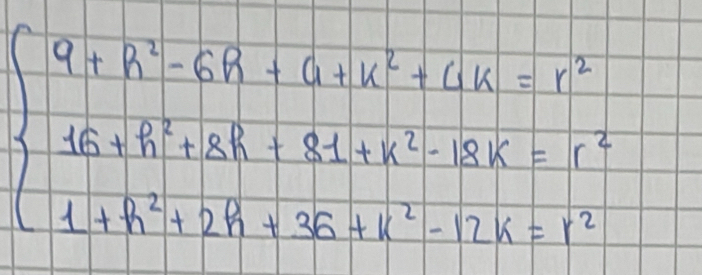 9 + h² - 6h + 4 + k² + 4k = r²
16 + h² + 8h + 81 + k² - 18k = r²
1 + h² + 2h + 36 + k² - 12k = r²